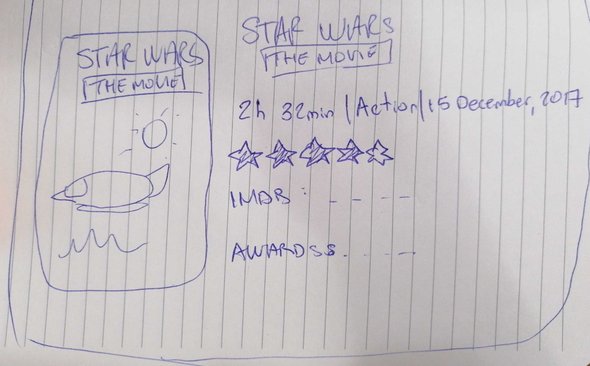 STAR WARS
THE MOVIE
STAR WARS
THE MOVIE
2h 32min | Action | 15 December, 2017
IMDB: - - - -
AWARDSS. - - -